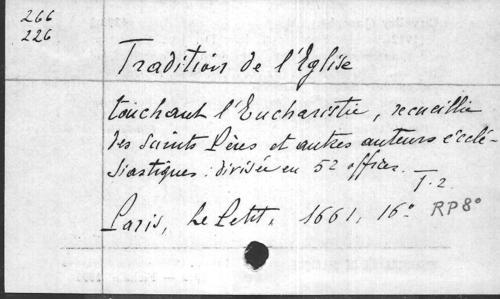 266
226
Tradition de l'Eglise
touchant l'Eucharistie, recueillie
des Saints Pères et autres auteurs ecclé-
siastiques : divisée en 52 offices.
T. 2.
Paris, Le Petit, 1661, 16° RP8°